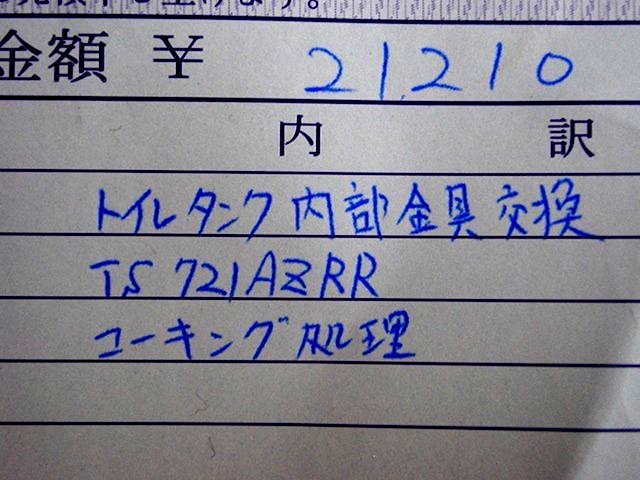 申し上げます。
金額 ¥ 21,210
内 訳
トイレタンク内部金具交換
TS 721AZRR
コーキング処理